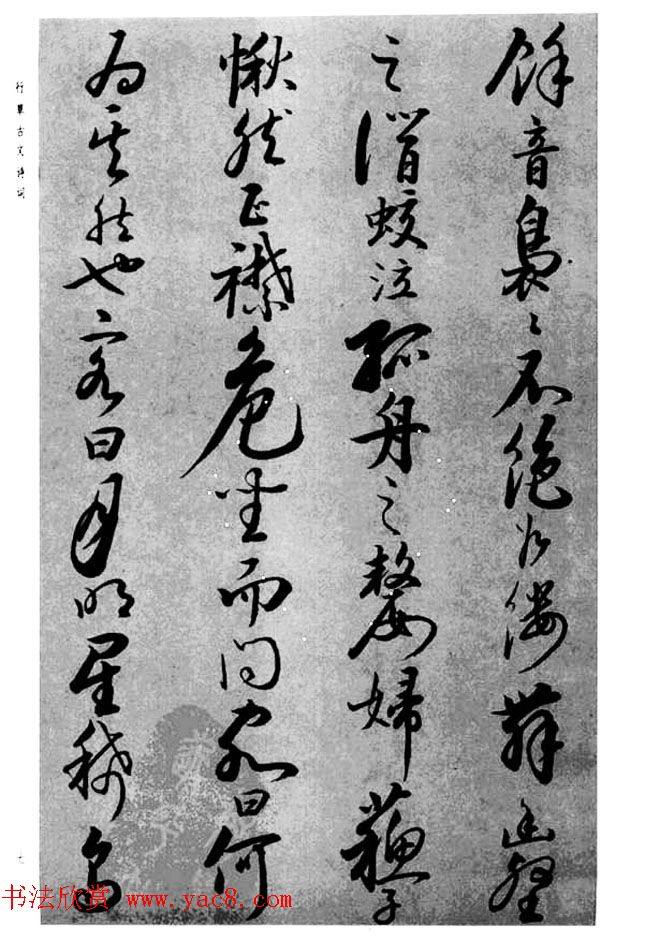 餘音裊〻不絕如縷舞幽壑
之潛蛟泣孤舟之嫠婦蘇子
愀然正襟危坐而问客曰何
为其然也客曰月明星稀烏
行草古文诗词
七
书法欣赏 www.yac8.com